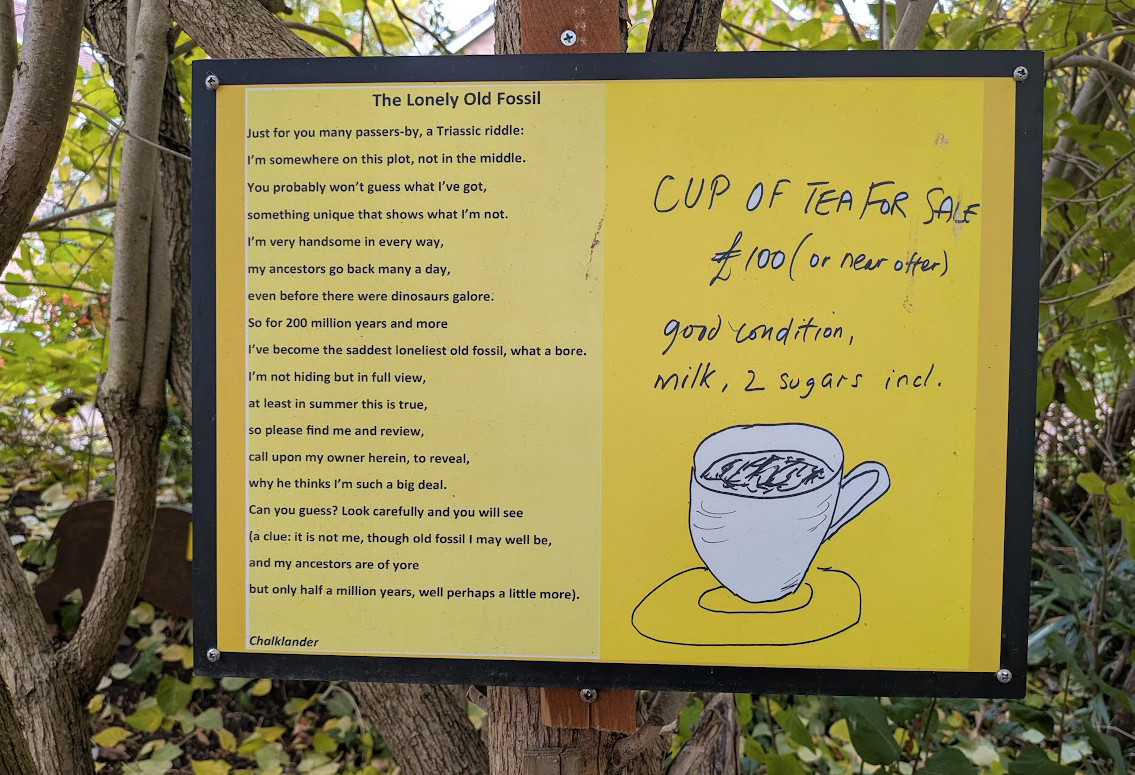 The Lonely Old Fossil
Just for you many passers-by, a Triassic riddle:
I'm somewhere on this plot, not in the middle.
You probably won't guess what I've got,
something unique that shows what I'm not.
I'm very handsome in every way,
my ancestors go back many a day,
even before there were dinosaurs galore.
So for 200 million years and more
I've become the saddest loneliest old fossil, what a bore.
I'm not hiding but in full view,
at least in summer this is true,
so please find me and review,
call upon my owner herein, to reveal,
why he thinks I'm such a big deal.
Can you guess? Look carefully and you will see
(a clue: it is not me, though old fossil I may well be,
and my ancestors are of yore
but only half a million years, well perhaps a little more).
Chalklander
CUP OF TEA FOR SALE
£100 (or near offer)
good condition,
milk, 2 sugars incl.